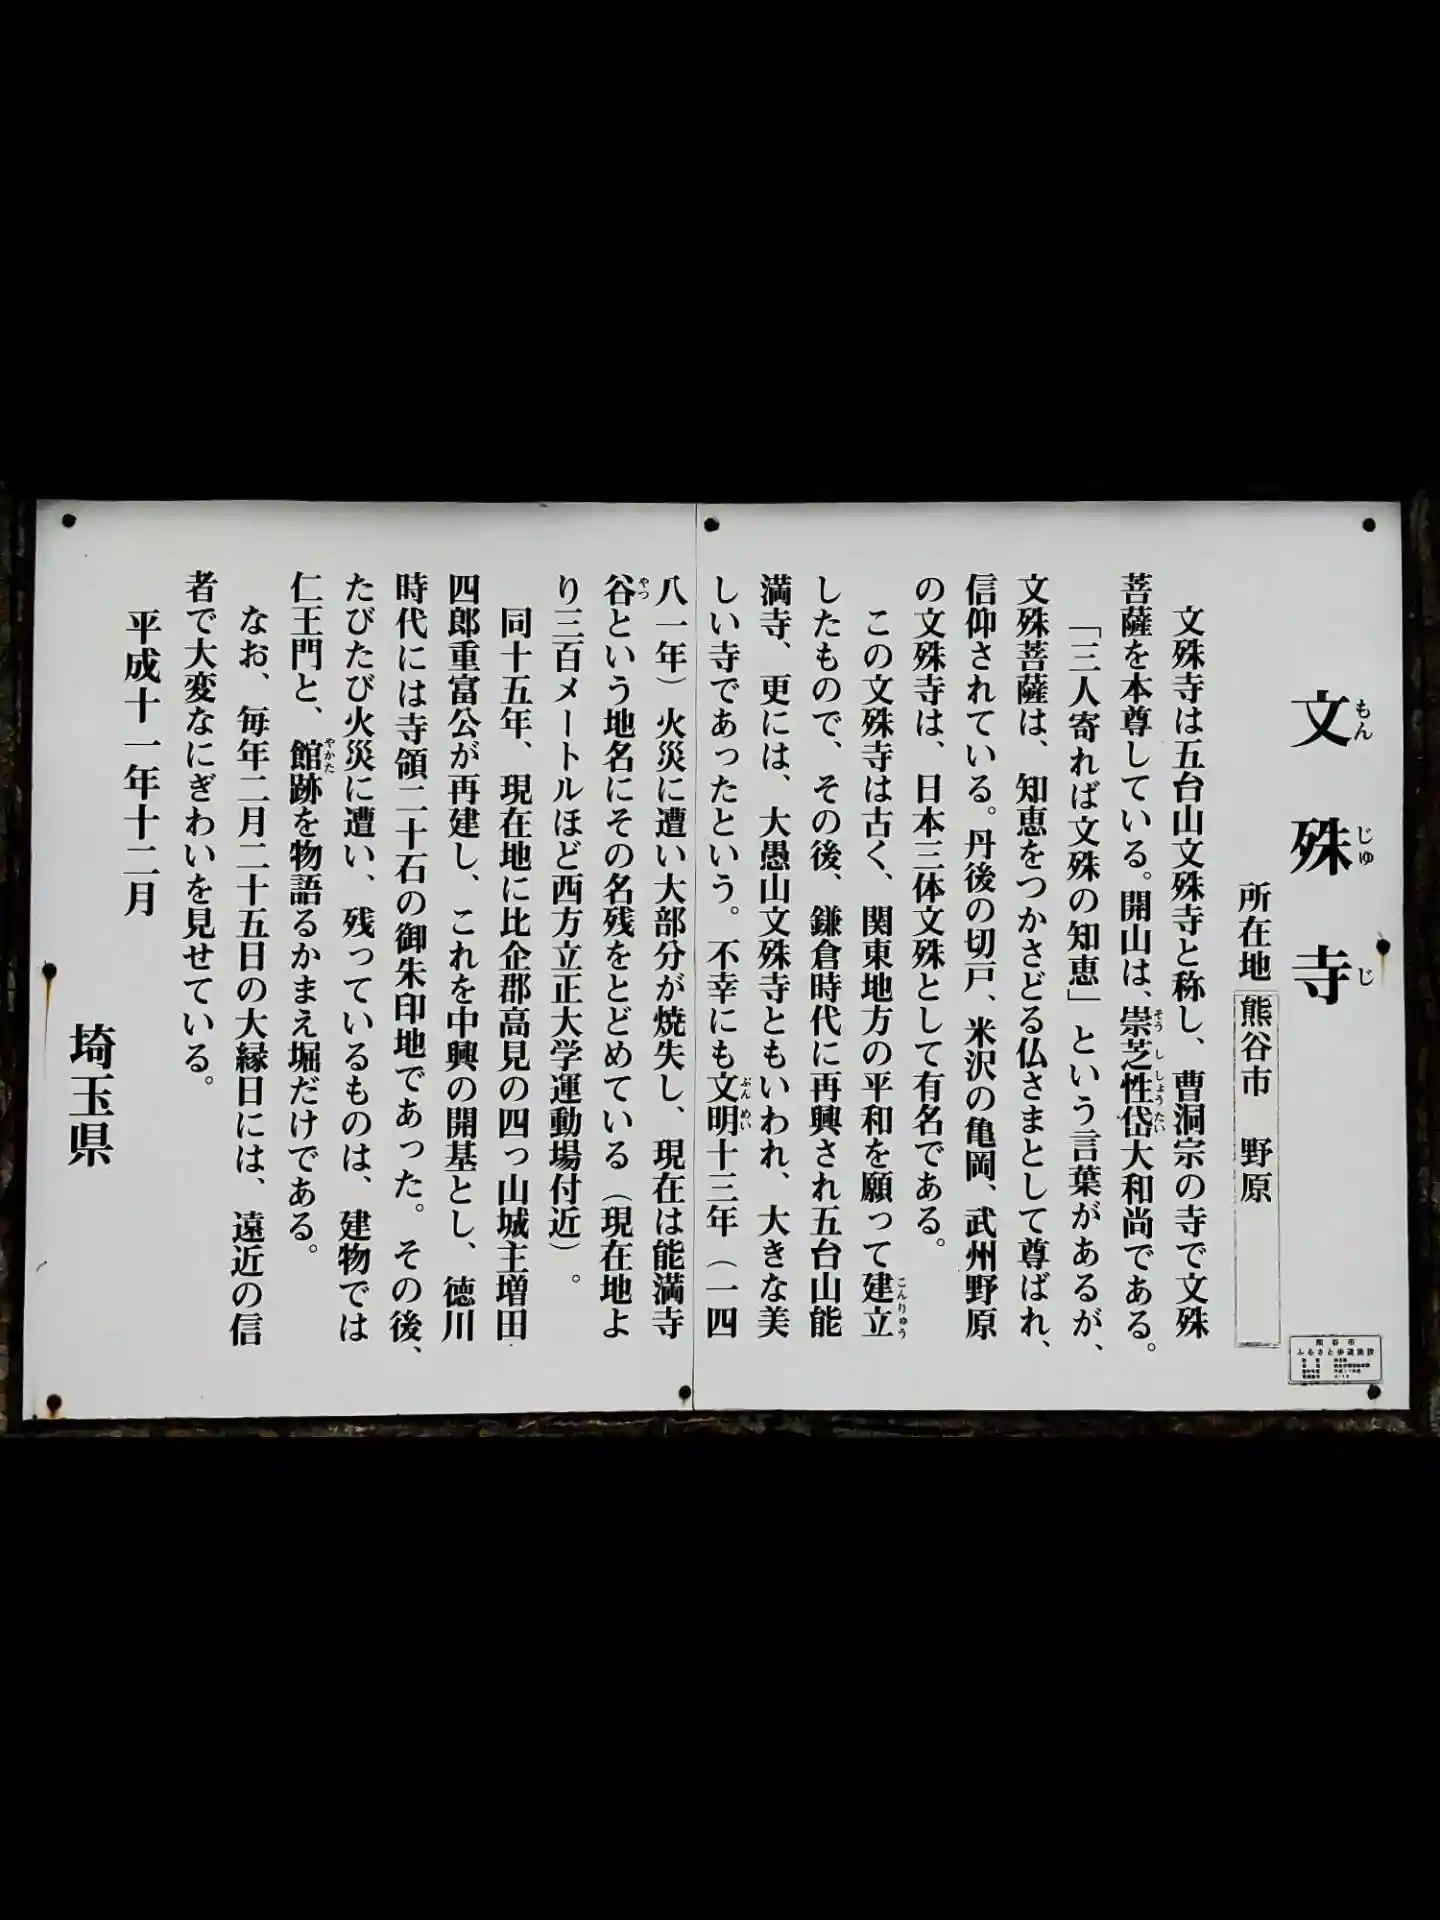 文殊寺
もんじゅじ
所在地 熊谷市 野原
文殊寺は五台山文殊寺と称し、曹洞宗の寺で文殊
菩薩を本尊している。開山は、崇芝性岱大和尚である。
そうししょうたい
「三人寄れば文殊の知恵」という言葉があるが、
文殊菩薩は、知恵をつかさどる仏さまとして尊ばれ、
信仰されている。丹後の切戸、米沢の亀岡、武州野原
の文殊寺は、日本三体文殊として有名である。
この文殊寺は古く、関東地方の平和を願って建立
こんりゅう
したもので、その後、鎌倉時代に再興され五台山能
満寺、更には、大愚山文殊寺ともいわれ、大きな美
しい寺であったという。不幸にも文明十三年（一四
ぶんめい
八一年）火災に遭い大部分が焼失し、現在は能満寺
谷という地名にその名残をとどめている（現在地よ
やつ
り三百メートルほど西方立正大学運動場付近）。
同十五年、現在地に比企郡高見の四っ山城主増田
四郎重富公が再建し、これを中興の開基とし、徳川
時代には寺領二十石の御朱印地であった。その後、
たびたび火災に遭い、残っているものは、建物では
仁王門と、館跡を物語るかまえ堀だけである。
やかた
なお、毎年二月二十五日の大縁日には、遠近の信
者で大変なにぎわいを見せている。
平成十一年十二月
埼玉県
熊谷市
ふるさと歩道施設